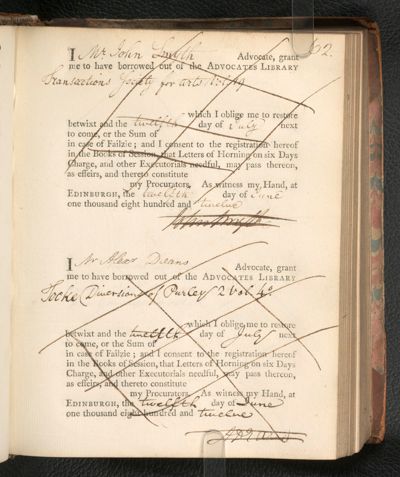 62.
I Mr John Smyth Advocate, grant
me to have borrowed out of the ADVOCATES LIBRARY
Transactions Society for arts
which I oblige me to restore
betwixt and the twelfth day of July next
to come, or the Sum of
in case of Failzie; and I consent to the registration hereof
in the Books of Session, that Letters of Horning on six Days
Charge, and other Executorials needful, may pass thereon,
as effeirs, and thereto constitute
my Procurators. As witness my Hand, at
EDINBURGH, the twelfth day of June
one thousand eight hundred and twelve
John Smyth
I Mr Alexr Deans Advocate, grant
me to have borrowed out of the ADVOCATES LIBRARY
Tooke Diversions of Purley 2 Vol. 4o.
which I oblige me to restore
betwixt and the twelfth day of July next
to come, or the Sum of
in case of Failzie; and I consent to the registration hereof
in the Books of Session, that Letters of Horning on six Days
Charge, and other Executorials needful, may pass thereon,
as effeirs, and thereto constitute
my Procurators. As witness my Hand, at
EDINBURGH, the twelfth day of June
one thousand eight hundred and twelve